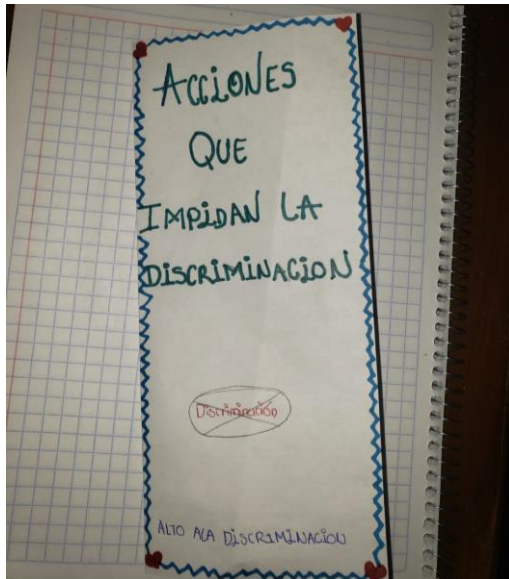 ACCiONES
QUE
IMPiDAN LA
DiSCRiMiNACiON
Discriminación
ALTO ALA DiSCRIMINACiON